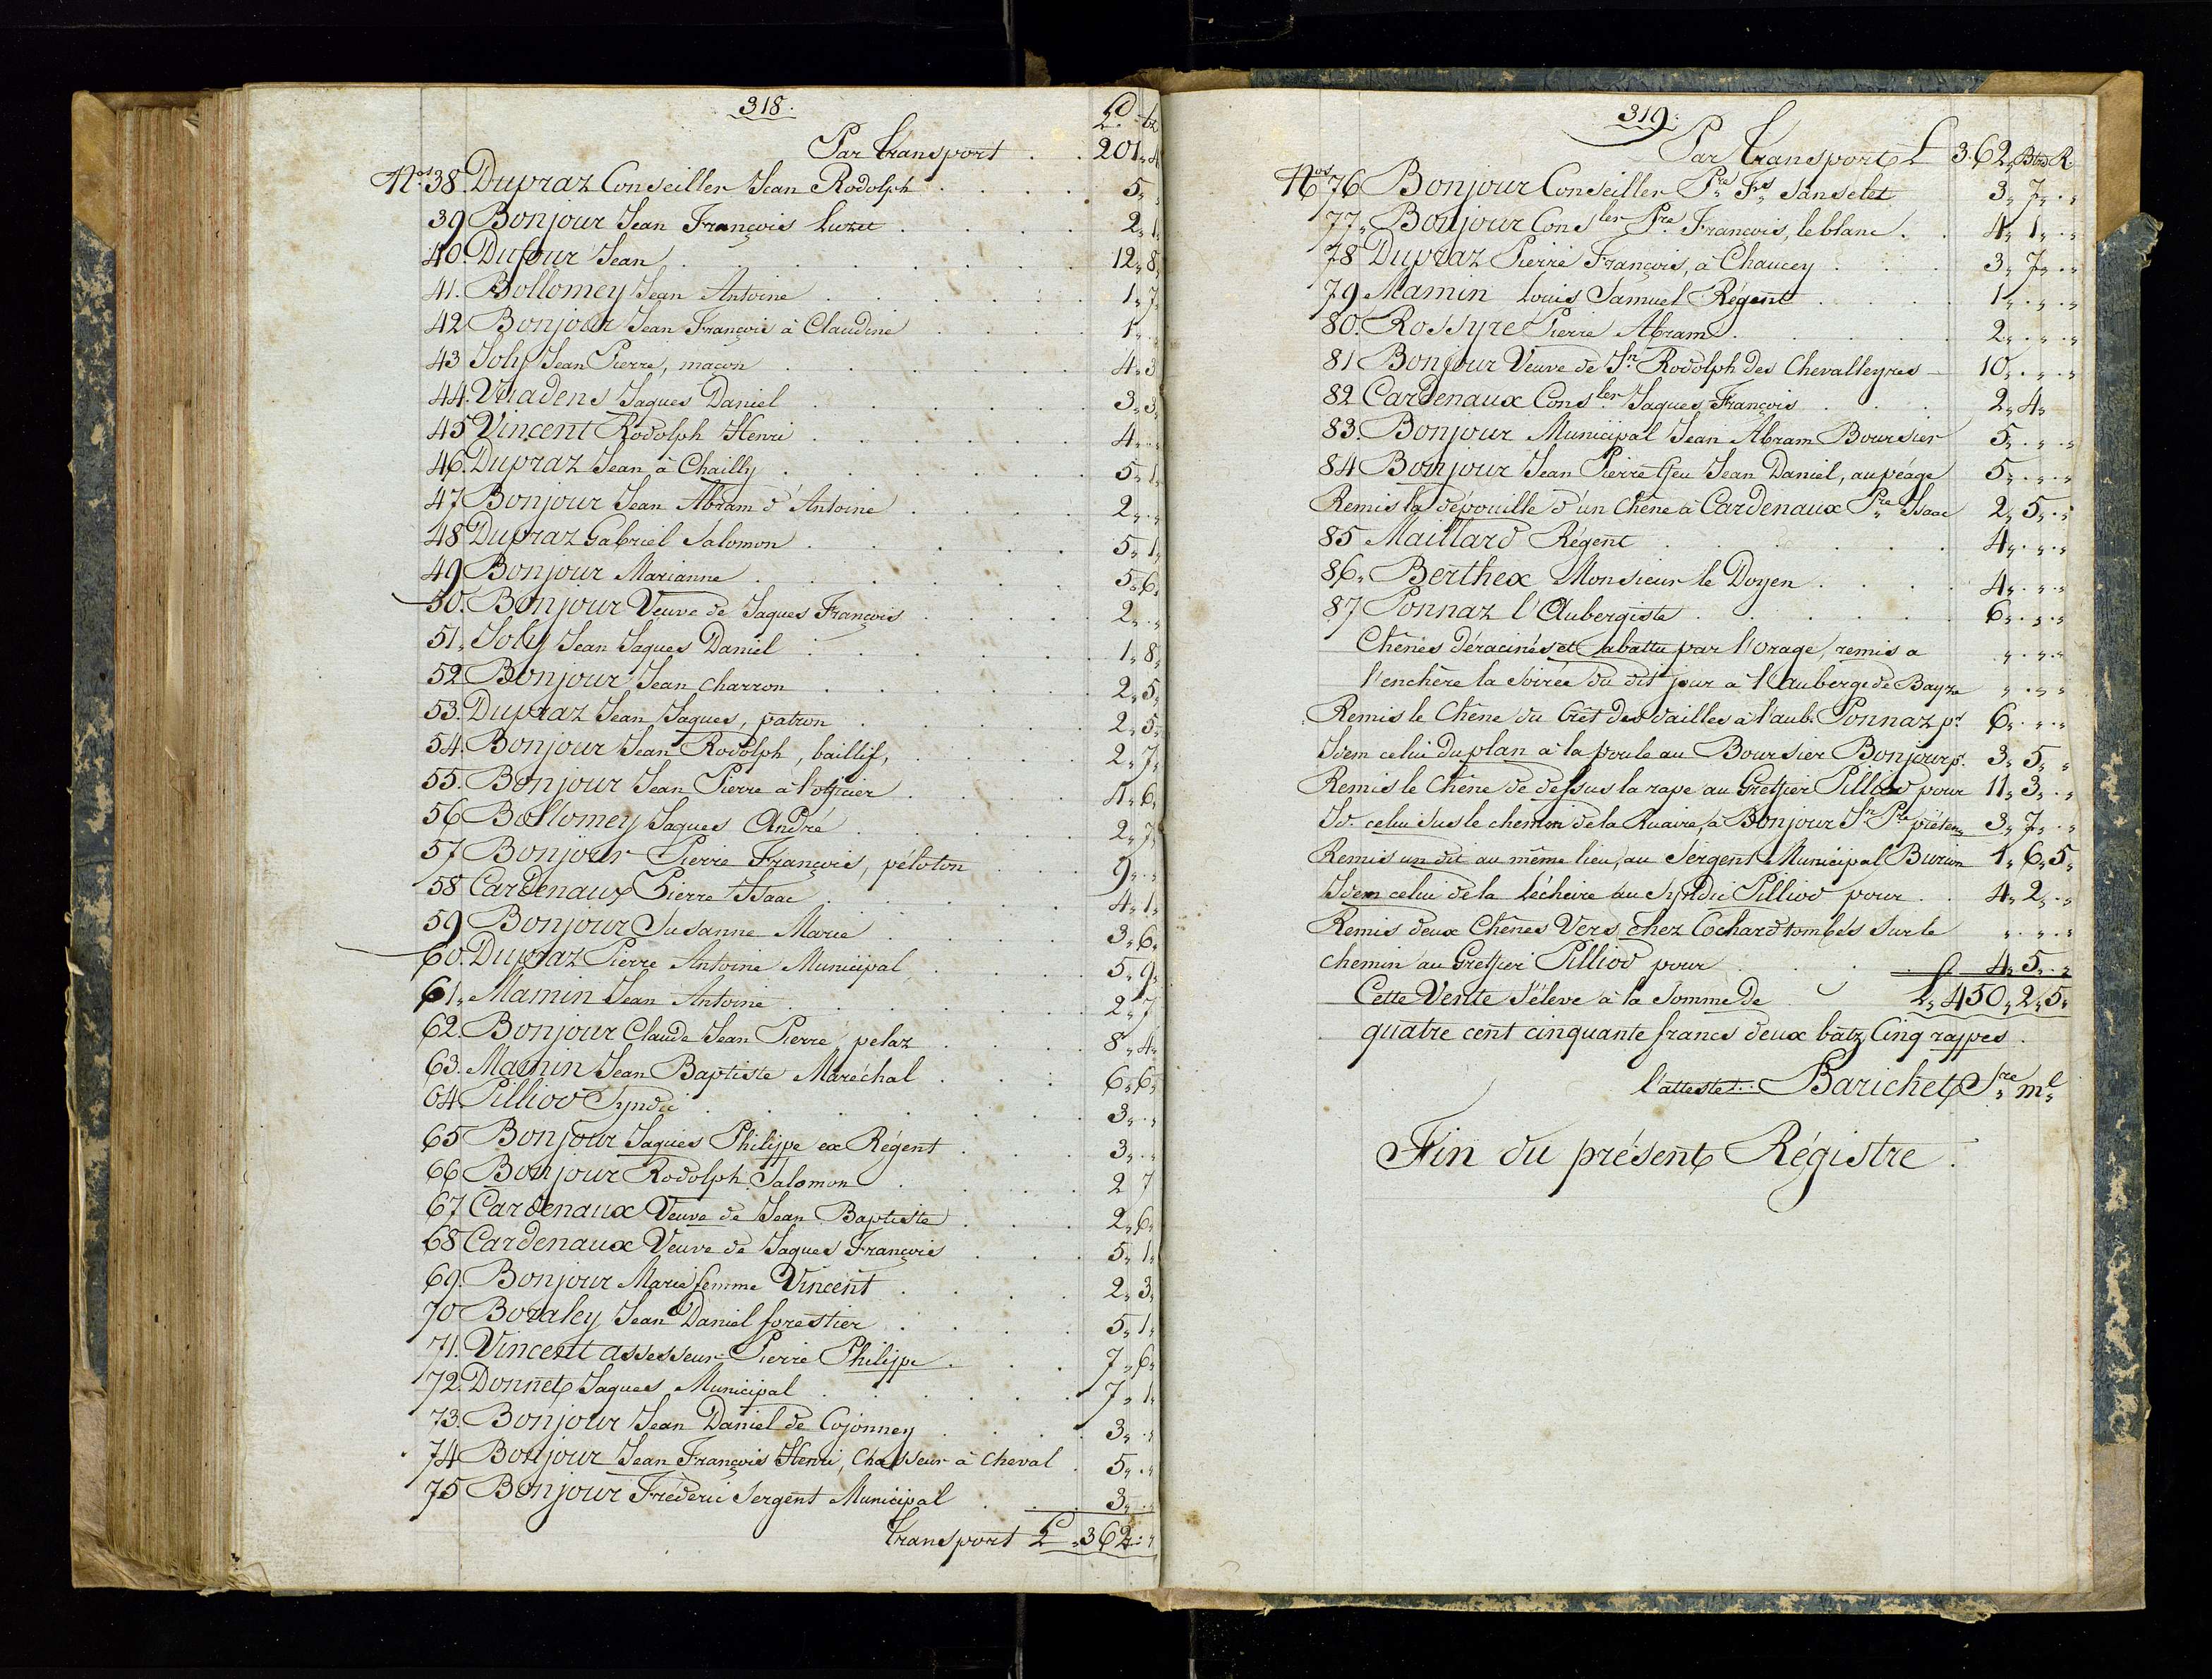 318.
L. btz
Par transport . . 201„4
Nos 38. Dupraz Conseiller Jean Rodolph . . . . 5„
39 Bonjour Jean François Luzet . . . . 2„1„
40. Dufour Jean . . . . 12„8„
41. Bollomey Jean Antoine . . . . 1„7„
42 Bonjour Jean François à Claudine . . . . 1„.
43 Joly Jean Pierre, maçon . . . . 4„3
44. Vuadens Jaques Daniel . . . . 3„3„
45 Vincent Rodolph Henri . . . . 4„.„
46. Dupraz Jean à Chailly . . . . 5„1„
47 Bonjour Jean Abram d'Antoine . . . . 2„.„
48 Dupraz Gabriel Salomon . . . . 5„1„
49 Bonjour Marianne . . . . 5„6„
50. Bonjour Veuve de Jaques François . . . . 2„.„
51„ Joly Jean Jaques Daniel . . . . 1„8„
52 Bonjour Jean charron . . . . 2„5„
53. Dupraz Jean Jaques, patron . . . . 2„5„
54. Bonjour Jean Rodolph, baillif, . . . . 2„7„
55. Bonjour Jean Pierre à l'officier . . . . 4„6„
56 Bollomey Jaques André . . . . 2„7„
57 Bonjour Pierre François, péloton . . . . 9„.„
58 Cardenaux Pierre Isaac . . . . 4„1„
59 Bonjour Susanne Marie . . . . 3„6„
60. Dupraz Pierre Antoine Municipal . . . . 5„9„
61„ Mamin Jean Antoine . . . . 2„7
62. Bonjour Claude Jean Pierre pelaz . . . . 8„4„
63. Mamin Jean Baptiste Maréchal . . . . 6„6„
64. Pilliod Syndic . . . . 3„.„
65 Bonjour Jaques Philippe ex Régent . . . . 3„.„
66 Bonjour Rodolph Salomon . . . . 2 7
67 Cardenaux Veuve de Jean Baptiste . . . . 2„6„
68 Cardenaux Veuve de Jaques François . . . . 5„1„
69. Bonjour Marie femme Vincent . . . . 2„3„
70 Boraley Jean Daniel forestier . . . . 5„1„
71. Vincent assesseur Pierre Philippe . . . . 7„6„
72. Donnet Jaques Municipal . . . . 7„1„
73. Bonjour Jean Daniel de Cojonney . . . . 3„.„
74 Bonjour Jean François Henri, Chasseur à Cheval . 5„.„
75 Bonjour Fréderic Sergent Municipal . . . . 3„.„
Transport L„362„.„
319.
Par transport L 362„Btz R.
Nos 76 Bonjour Conseiller Pre Fs Sanselet 3„7„.„
77„ Bonjour Consler Pre François, leblanc . 4„1„.„
78 Dupraz Pierre François, à Chaucey . . 3„7„.„
79 Mamin Louis Samuel Régent . . . . 1„.„.„
80. Rossyre Pierre Abram . . . . 2„.„.„
81 Bonjour Veuve de Jn Rodolph des Chevalleyres 10„.„.„
82 Cardenaux Consler Jaques François . . . 2„4„
83. Bonjour Municipal Jean Abram Boursier 5„.„.„
84 Bonjour Jean Pierre feu Jean Daniel, au péage 5„.„.„
Remis la dépouille d'un Chêne à Cardenaux Pre Isaac 2„5„.„
85 Maillard Régent . . . . 4„.„.„
86„ Berthex Monsieur le Doyen . . . . 4„.„.„
87 Ponnaz l'Aubergiste . . . . 6„.„.„
Chênes déracinés et abattu par l'orage, remis a „.„.„
l'enchère la Soirée du dit jour à l'auberge de Bayse „.„.„
Remis le Chêne du Crêt des dailles à l'aub. Ponnaz pr 6„.„.„
Idem celui du plan à la poule au Boursier Bonjour pr. 3„5„.„
Remis le Chêne de dessus la rape au Greffier Pilliod pour 11„3„.„
Id. celui sus le chemin de la Ruaire, à Bonjour Jn Pre 3„7„.„
Remis un dit au même lieu, au Sergent Municipal Burion 1„6„5„
Idem celui de la Lécheire au Syndic Pilliod pour . . 4„2„.„
Remis deux Chênes Vers chez Cochard tombés sur le „.„.„
chemin au Greffier Pilliod pour . . . 4„5„.„
Cette Vente S'éleve à la Somme de L„450„2„5„
quatre cent cinquante francs deux batz Cinq rappes .
l'atteste .. Barichet Sre ml
Fin du présent Régistre .